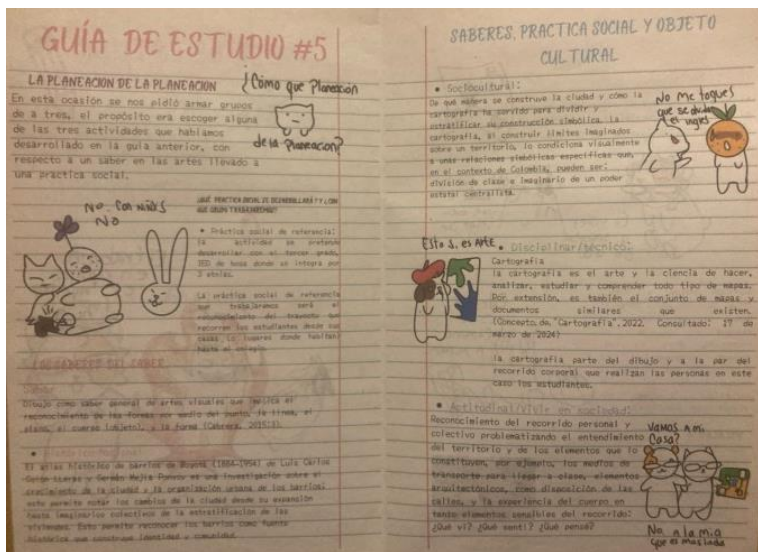 GUÍA DE ESTUDIO #5
LA PLANEACIÓN DE LA PLANEACIÓN
¿Cómo que Planeación
de la Planeación?
En esta ocasión se nos pidió armar grupos
de a tres, el propósito era escoger alguna
de las tres actividades que habíamos
desarrollado en la guía anterior, con
respecto a un saber en las artes llevado a
una practica social.
No, con niños
No
• Práctica social de referencia:
la actividad se pretende
desarrollar con el tercer grado,
de bosa donde se integra por
3 etnias.
La práctica social de referencia
que trabajaremos será el
reconocimiento del trayecto que
recorren los estudiantes desde sus
casas (o lugares donde habitan)
hasta el colegio.
LOS SABERES DEL SABER
Dibujo como saber general de artes visuales que implica el
reconocimiento de las formas por medio del punto, la línea, el
plano, el cuerpo (objeto), y la forma (Cabrera, 2015:3).
El atlas histórico de barrios de Bogotá (1884-1954) de Luis Carlos
y Germán Mejía Pavony es una investigación sobre el
crecimiento de la ciudad y la organización urbana de los barrios;
esto permite notar los cambios de la ciudad desde su expansión
hasta imaginarios colectivos de la estratificación de las
viviendas. Esto permite reconocer los barrios como fuente
histórica que construye identidad y comunidad.
SABERES, PRACTICA SOCIAL Y OBJETO
CULTURAL
• Sociocultural:
De qué manera se construye la ciudad y cómo la
cartografía ha servido para dividir y
estratificar su construcción simbólica. La
cartografía, al construir límites imaginados
sobre un territorio, lo condiciona visualmente
a unas relaciones simbólicas específicas que,
en el contexto de Colombia, pueden ser:
división de clase e imaginario de un poder
estatal centralista.
No me toques
que se
el
Esto si es ARTE
• Disciplinar/técnico:
Cartografía
la cartografía es el arte y la ciencia de hacer,
analizar, estudiar y comprender todo tipo de mapas.
Por extensión, es también el conjunto de mapas y
documentos similares que existen.
(Concepto.de, "Cartografía", 2022. Consultado: 17 de
marzo de 2024)
la cartografía parte del dibujo y a la par del
recorrido corporal que realizan las personas en este
caso los estudiantes.
• Actitudinal/vivir en sociedad:
Reconocimiento del recorrido personal y
colectivo problematizando el entendimiento
del territorio y de los elementos que lo
constituyen, por ejemplo, los medios de
transporte para llegar a clase, elementos
arquitectónicos, como disposición de las
calles, y la experiencia del cuerpo en
tanto elementos sensibles del recorrido:
¿Qué vi? ¿Qué sentí? ¿Qué pensé?
Vamos a mi
Casa?
No a la mia
que es mas